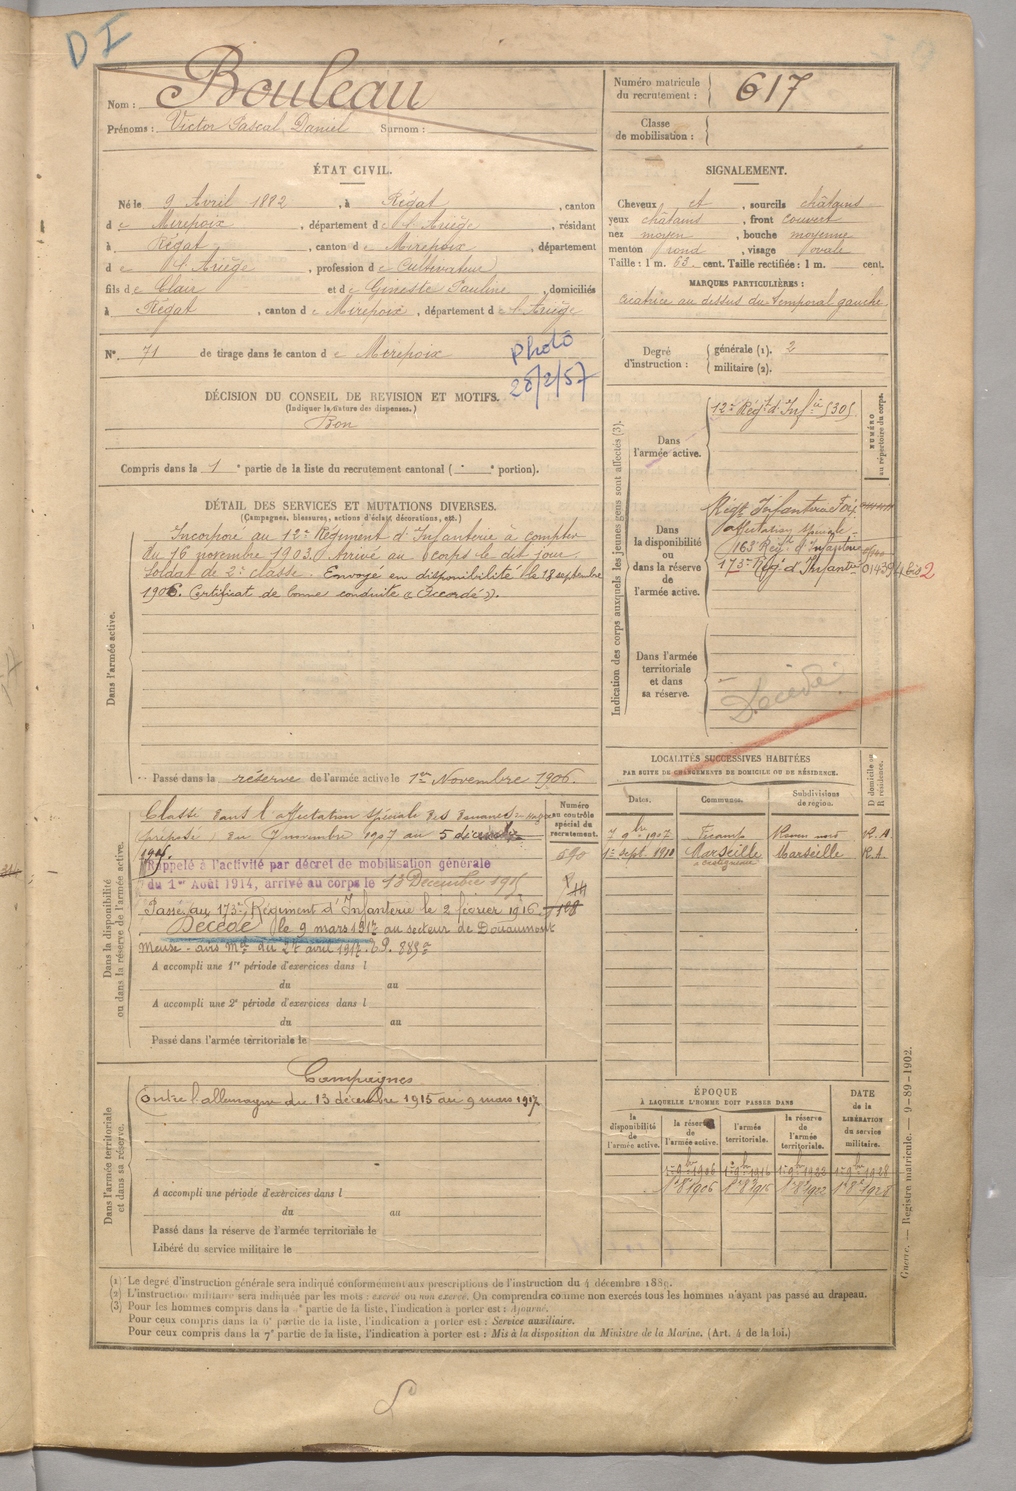 DI
Nom : Bouleau
Prénoms : Victor Pascal Daniel Surnom :
Numéro matricule du recrutement : 617
Classe de mobilisation :
ÉTAT CIVIL.
Né le 9 Avril 1882, à Régat, canton
d e Mirepoix, département d e l'Ariège, résidant
à Régat, canton d e Mirepoix, département
d e l'Ariège, profession d e Cultivateur
fils d e Clair et d e Gineste Pauline, domiciliés
à Régat, canton d e Mirepoix, département d e l'Ariège
N° 71 de tirage dans le canton d e Mirepoix
photo
28/2/57
DÉCISION DU CONSEIL DE REVISION ET MOTIFS.
(Indiquer la nature des dispenses.)
Bon
Compris dans la 1e partie de la liste du recrutement cantonal ( e portion).
SIGNALEMENT.
Cheveux et, sourcils châtains
yeux châtains, front couvert
nez moyen, bouche moyenne
menton rond, visage ovale
Taille : 1 m. 63 cent. Taille rectifiée : 1 m. cent.
MARQUES PARTICULIÈRES :
cicatrice au dessus du temporal gauche
Degré d'instruction : générale (1). 2
militaire (2).
DÉTAIL DES SERVICES ET MUTATIONS DIVERSES.
(Campagnes, blessures, actions d'éclat, décorations, etc.)
Dans l'armée active.
Incorporé au 12e Régiment d'Infanterie à compter
du 16 novembre 1903. Arrivé au corps le dit jour.
Soldat de 2e classe. Envoyé en disponibilité le 18 septembre
1906. Certificat de bonne conduite « Accordé ».
Passé dans la réserve de l'armée active le 1er Novembre 1906.
Dans la disponibilité ou dans la réserve de l'armée active.
Classé dans l'affectation spéciale des Douanes
préposé du 7 novembre 1907 au 5 décembre
Rappelé à l'activité par décret de mobilisation générale
du 1er Août 1914, arrivé au corps le 13 Décembre 1915
Passé au 173e Régiment d'Infanterie le 2 février 1916
Décédé le 9 mars 1917 au secteur de Douaumont
Meuse - avis Mel du 24 avril 1917.
A accompli une 1re période d'exercices dans l
du au
A accompli une 2e période d'exercices dans l
du au
Passé dans l'armée territoriale le
Numéro au contrôle spécial du recrutement.
590
Dans l'armée territoriale et dans sa réserve.
Campagnes
Contre l'allemagne du 13 décembre 1915 au 9 mars 1917
A accompli une période d'exercices dans l
du au
Passé dans la réserve de l'armée territoriale le
Libéré du service militaire le
Indication des corps auxquels les jeunes gens sont affectés (3).
NUMÉRO au répertoire du corps.
Dans l'armée active.
12e Régt d'Infie
Dans la disponibilité ou dans la réserve de l'armée active.
Régt Infanterie Foix
affectation spéciale
163e Régt d'Infanterie
173e Rég. d'Infanterie 01439
Dans l'armée territoriale et dans sa réserve.
Décédé
LOCALITÉS SUCCESSIVES HABITÉES
PAR SUITE DE CHANGEMENTS DE DOMICILE OU DE RÉSIDENCE.
Dates. Communes. Subdivisions de région. D domicile ou R résidence.
7 9bre 1907 Fécamp Rouen nord R. A.
1er sept. 1910 Marseille Marseille R. A
ÉPOQUE
À LAQUELLE L'HOMME DOIT PASSER DANS
la disponibilité de l'armée active. la réserve de l'armée active. l'armée territoriale. la réserve de l'armée territoriale.
DATE de la LIBÉRATION du service militaire.
1er 9bre 1906 1er 9bre 1916 1er 9bre 1922 1er 9bre 1928
Guerre. — Registre matricule. — 9-89-1902.
(1) Le degré d'instruction générale sera indiqué conformément aux prescriptions de l'instruction du 4 décembre 1889.
(2) L'instruction militaire sera indiquée par les mots : exercé ou non exercé. On comprendra comme non exercés tous les hommes n'ayant pas passé au drapeau.
(3) Pour les hommes compris dans la 5e partie de la liste, l'indication à porter est : Ajourné.
Pour ceux compris dans la 6e partie de la liste, l'indication à porter est : Service auxiliaire.
Pour ceux compris dans la 7e partie de la liste, l'indication à porter est : Mis à la disposition du Ministre de la Marine. (Art. 4 de la loi.)